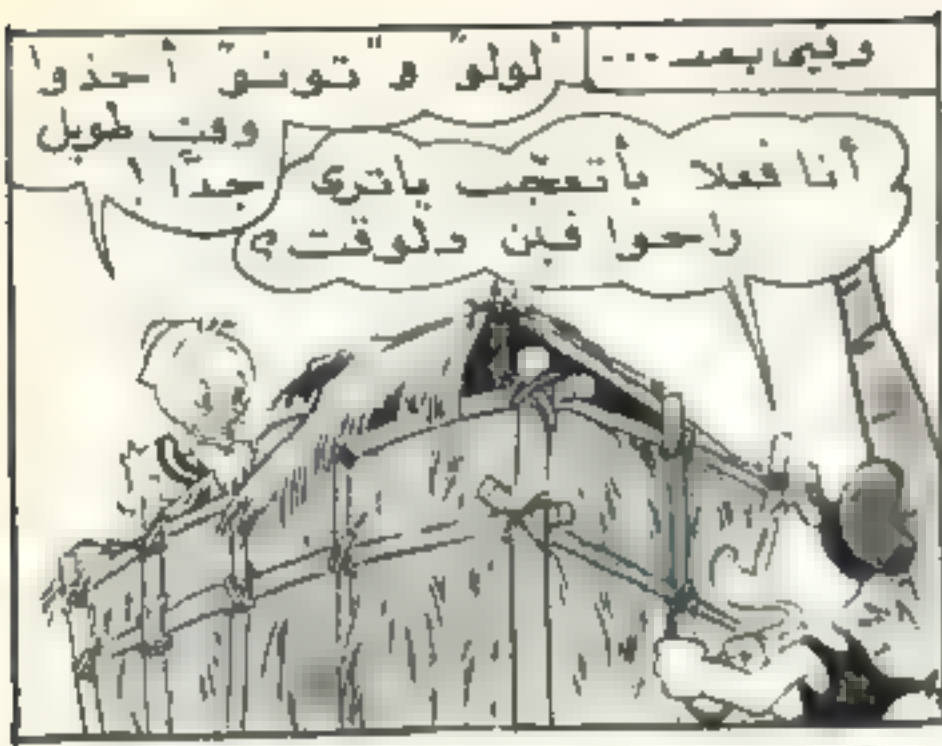 وفيما بعد ...
"لولو" و "تونو" أخذوا
وقت طويل
جدًا !
أنا فعلا بأتعجّب ياترى
راحوا فين دلوقت ؟